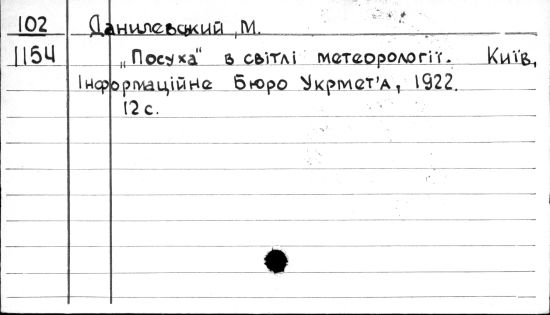 102 Данилевський, М.
1154 „Посуха“ в світлі метеорології. Київ,
Інформаційне Бюро Укрмет'а, 1922.
12 с.